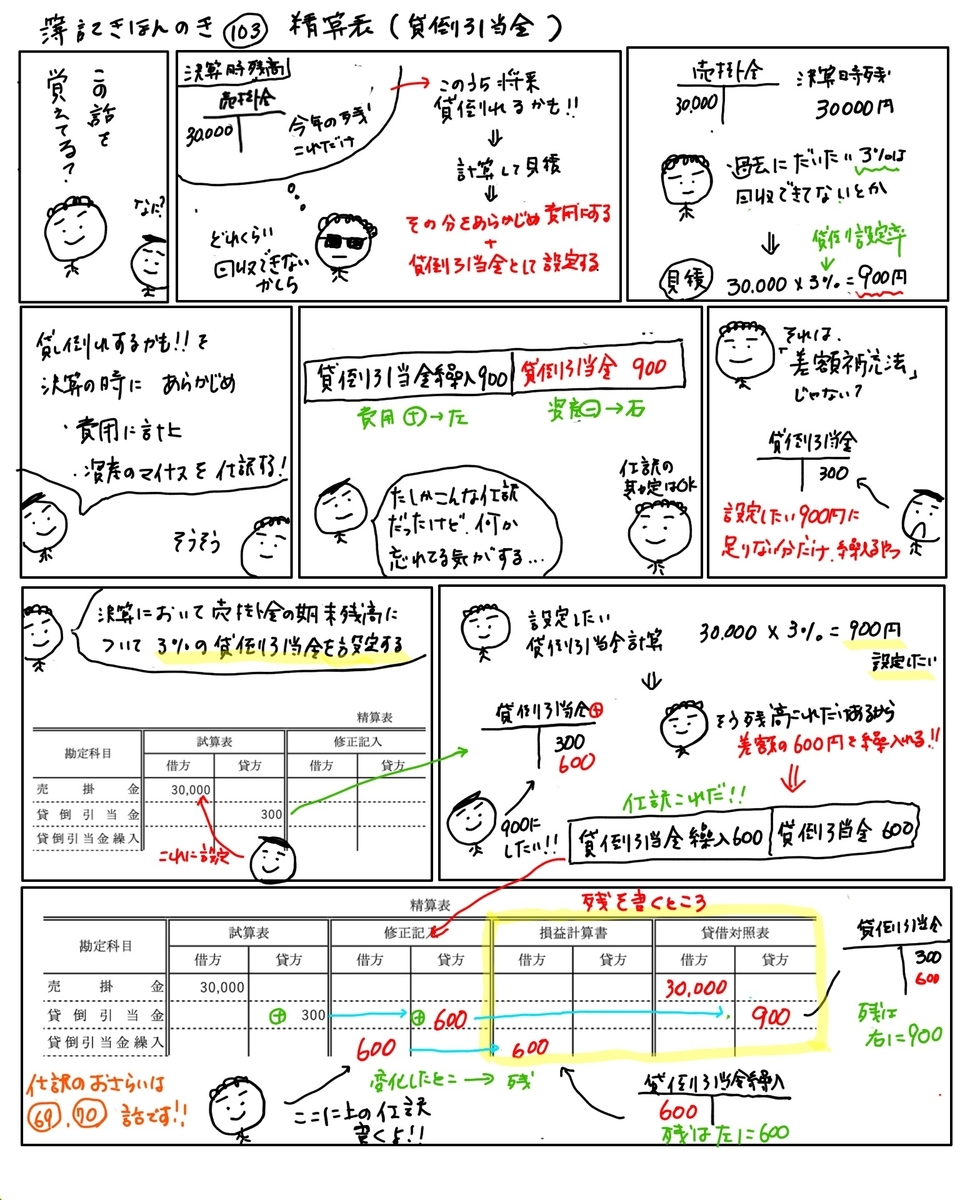 簿記きほんのき 103 精算表(貸倒引当金)
この話を
覚えてる?
なに?
決算時残高
売掛金
30.000
今年の残
これだけ
どれくらい
回収できない
かしら
このうち将来
貸倒れるかも!!
⇓
計算して見積
⇓
その分をあらかじめ費用にする
+
貸倒引当金として設定する
売掛金
30.000
決算時残
30000円
過去にだいたい3%は
回収できてないとか
⇓
貸倒設定率
見積
30.000×3%=900円
貸し倒れするかも!!を
決算の時に あらかじめ
・費用に計上
・資産のマイナスを仕訳する!
そうそう
貸倒引当金繰入900 貸倒引当金 900
費用⊕→左 資産⊖→右
たしかこんな仕訳
だったけど、何か
忘れてる気がする…
仕訳の
基定はOK
それは、
「差額補充法」
じゃない?
貸倒引当金
300
設定したい900円に
足りない分だけ、繰入るやつ
決算において売掛金の期末残高に
ついて 3%の貸倒引当金を設定する
精算表
勘定科目 試算表 修正記入
借方 貸方 借方 貸方
売掛金 30,000
貸倒引当金 300
貸倒引当金繰入
これに設定
設定したい
貸倒引当金計算
30.000×3%=900円
設定したい
⇓
貸倒引当金⊕
300
600
900に
したい!!
もう残高これだけあるから
差額の600円を繰入れる!!
⇓
仕訳これだ!!
貸倒引当金繰入600 貸倒引当金 600
精算表
残を書くところ
勘定科目 試算表 修正記入 損益計算書 貸借対照表
借方 貸方 借方 貸方 借方 貸方 借方 貸方
売掛金 30,000 30.000
貸倒引当金 ⊕ 300 ⊕ 600 900
貸倒引当金繰入 600 600
貸倒引当金
300
600
残は
右に900
変化したとこ → 残
仕訳のおさらいは
69、70 話です!!
ここに上の仕訳
書くよ!!
貸倒引当金繰入
600
残は左に600